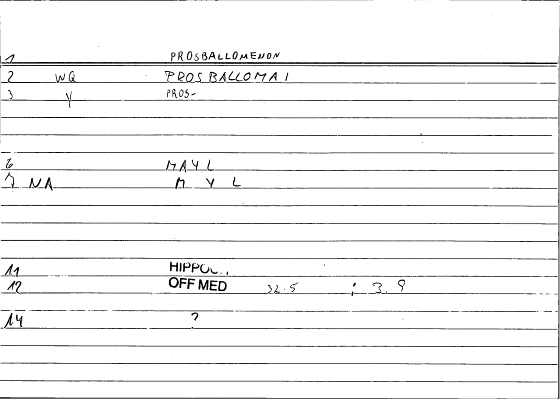 1 PROSBALLOMENON
2 WQ PROSBALLOMAI
3 Y PROS-
6 MAYL
7 NA M Y L
11 HIPPOC
12 OFF MED 32.5 ; 3.9
14 ?